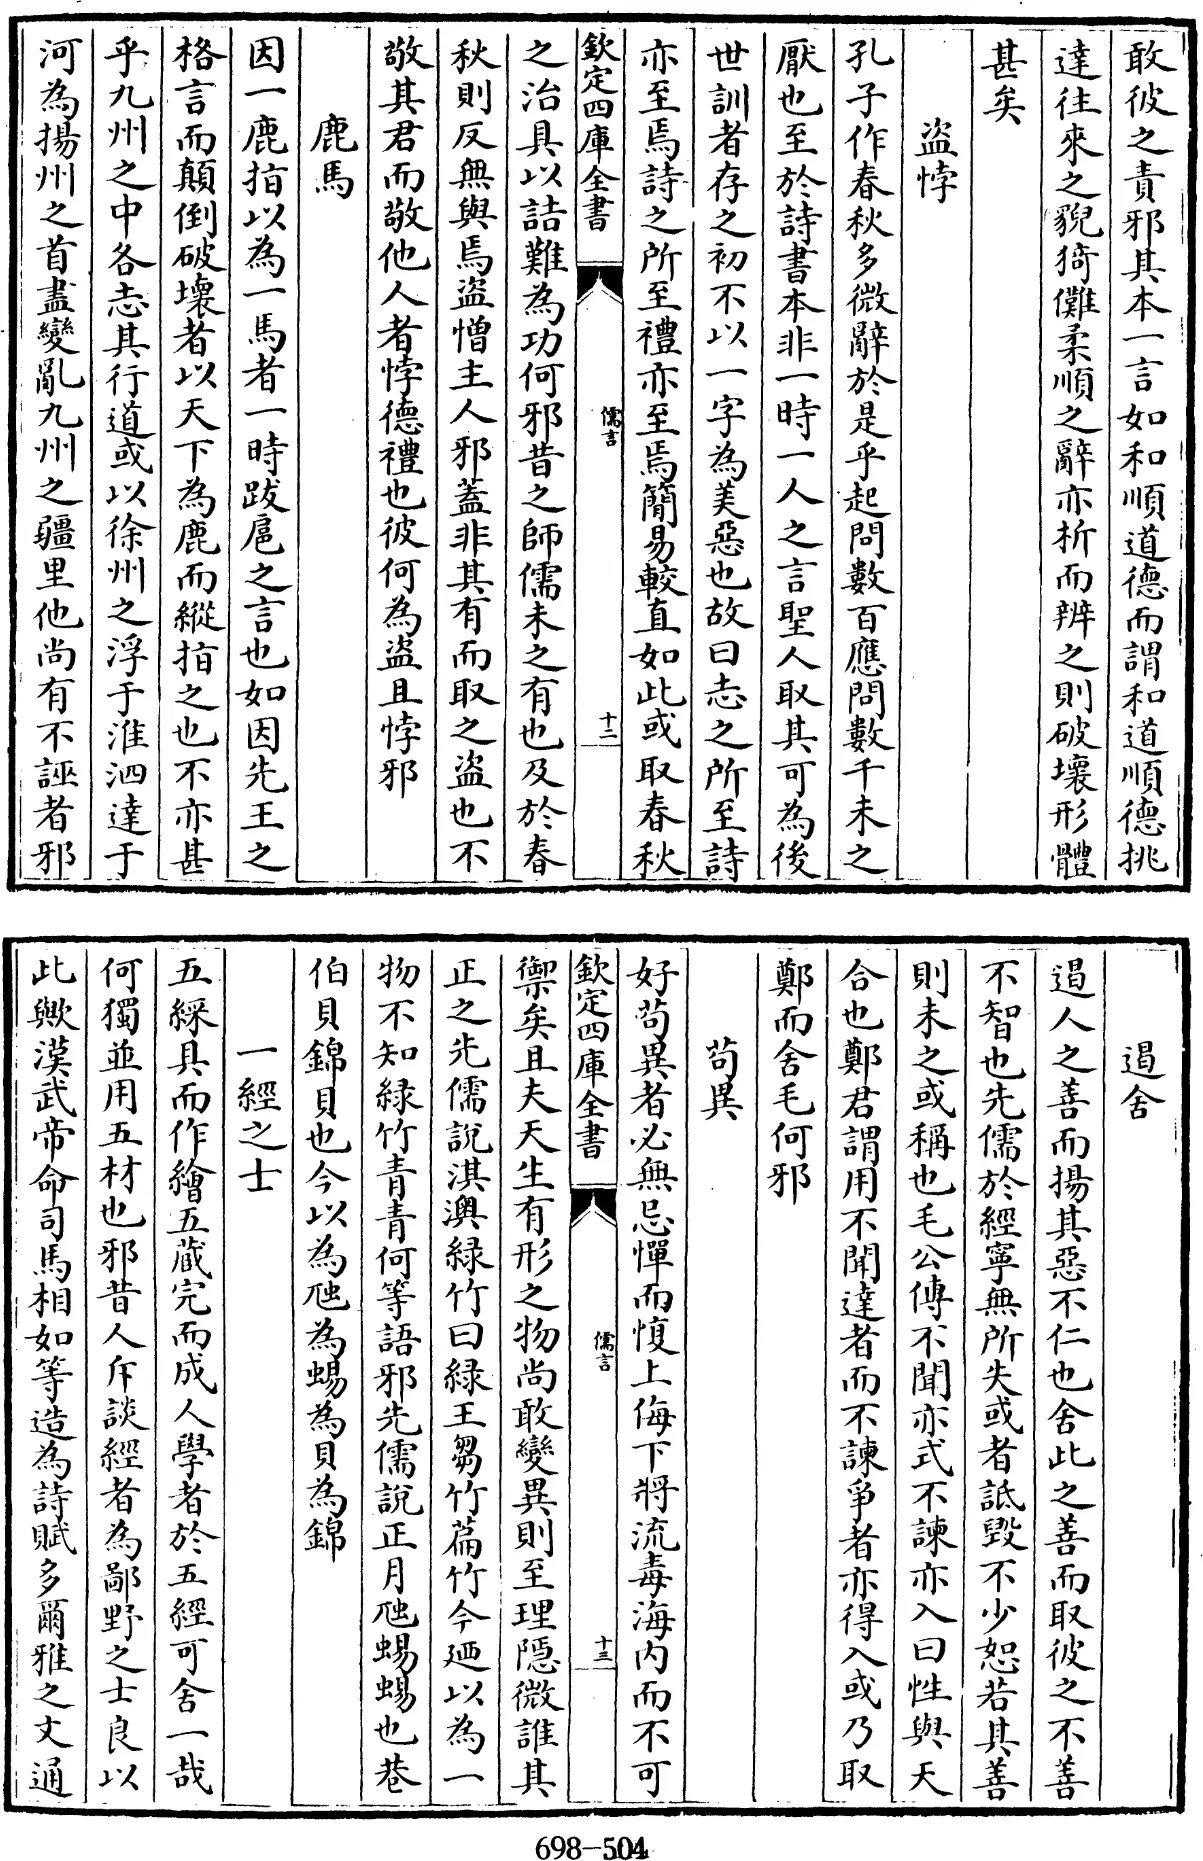 敢彼之責邪其本一言如和順道德而謂和道順德挑
達往來之貌猗儺柔順之辭亦析而辨之則破壞形體
甚矣
盜悖
孔子作春秋多微辭於是乎起問數百應問數千未之
厭也至於詩書本非一時一人之言聖人取其可為後
世訓者存之初不以一字為美惡也故曰志之所至詩
亦至焉詩之所至禮亦至焉簡易較直如此或取春秋
欽定四庫全書
儒言
十二
之治具以詰難為功何邪昔之師儒未之有也及於春
秋則反無與焉盜憎主人邪蓋非其有而取之盜也不
敬其君而敬他人者悖德禮也彼何為盜且悖邪
鹿馬
因一鹿指以為一馬者一時跋扈之言也如因先王之
格言而顛倒破壞者以天下為鹿而縱指之也不亦甚
乎九州之中各志其行道或以徐州之浮于淮泗達于
河為揚州之首盡變亂九州之疆里他尚有不誣者邪
遏舍
遏人之善而揚其惡不仁也舍此之善而取彼之不善
不智也先儒於經寧無所失或者詆毀不少恕若其善
則未之或稱也毛公傳不聞亦式不諫亦入曰性與天
合也鄭君謂用不聞達者而不諫爭者亦得入或乃取
鄭而舍毛何邪
茍異
好茍異者必無忌憚而愎上侮下將流毒海内而不可
欽定四庫全書
儒言
十三
禦矣且夫天生有形之物尚敢變異則至理隱微誰其
正之先儒說淇澳緑竹曰緑王芻竹萹竹今廼以為一
物不知緑竹青青何等語邪先儒說正月虺蜴蜴也巷
伯貝錦貝也今以為虺為蜴為貝為錦
一經之士
五綵具而作繪五藏完而成人學者於五經可舍一哉
何獨並用五材也邪昔人斥談經者為鄙野之士良以
此歟漢武帝命司馬相如等造為詩賦多爾雅之文通
698-504